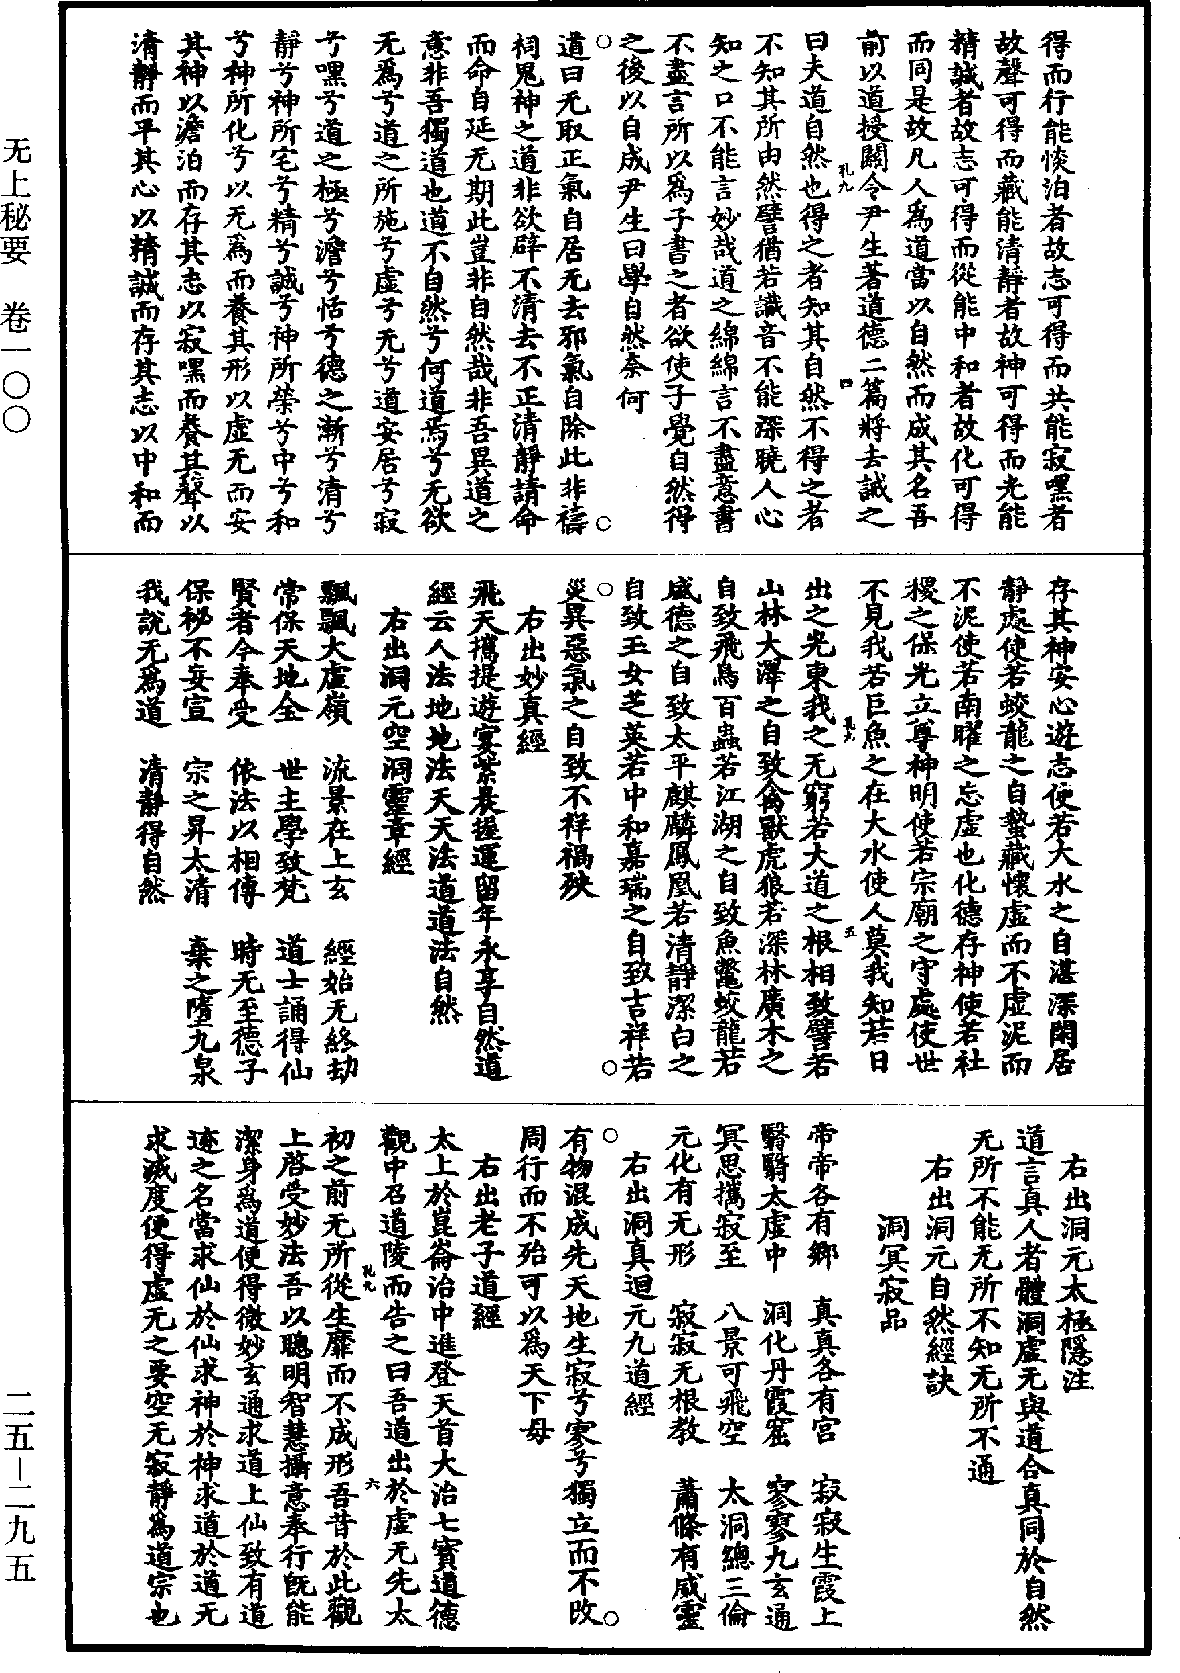 得而行能惔泊者故志可得而共能寂嘿者
故聲可得而藏能清靜者故神可得而光能
精誠者故志可得而從能中和者故化可得
而同是故凡人為道當以自然而成其名吾
前以道授關令尹生著道德二篇將去誡之
曰夫道自然也得之者知其自然不得之者
不知其所由然譬猶若識音不能深曉人心
知之口不能言妙哉道之綿綿言不盡意書
不盡言所以為子書之者欲使子覺自然得
之後以自成尹生曰學自然奈何
道曰无取正氣自居无去邪氣自除此非禱
祠鬼神之道非欲辟不清去不正清靜請命
而命自延无期此豈非自然哉非吾異道之
意非吾獨道也道不自然兮何道焉兮无欲
无為兮道之所施兮虛兮无兮道安居兮寂
兮嘿兮道之極兮澹兮恬兮德之漸兮清兮
靜兮神所宅兮精兮誠兮神所榮兮中兮和
兮神所化兮以无為而養其形以虛无而安
其神以澹泊而存其志以寂嘿而養其聲以
清靜而平其心以精誠而存其志以中和而
存其神安心遊志使若大水之自湛深閑居
靜處使若蛟龍之自蟄藏懷虛而不虛泥而
不泥使若南曜之忘虛也化德存神使若社
稷之保光立尊神明使若宗廟之守處使世
不見我若巨魚之在大水使人莫我知若日
出之光東我之无窮若大道之根相致譬若
山林大澤之自致禽獸虎狼若深林廣木之
自致飛鳥百蟲若江湖之自致魚鼈蛟龍若
盛德之自致太平麒麟鳳凰若清靜潔白之
自致玉女芝英若中和嘉瑞之自致吉祥若
災異惡氣之自致不祥禍殃
右出妙真經
飛天攜提遊宴紫晨握運留年永享自然道
經云人法地地法天天法道道法自然
右出洞元空洞靈章經
飄飄大虛嶺　流景在上玄　經始无終劫
常保天地全　世主學致梵　道士誦得仙
賢者今奉受　依法以相傳　時无至德子
保祕不妄宣　宗之昇太清　棄之墮九泉
我說无為道　清靜得自然
右出洞元太極隱注
道言真人者體洞虛无與道合真同於自然
无所不能无所不知无所不通
右出洞元自然經訣
洞冥寂品
帝帝各有鄉　真真各有宮　寂寂生霞上
翳翳太虛中　洞化丹霞窟　寥寥九玄通
冥思攜寂至　八景可飛空　太洞總三倫
元化有无形　寂寂无根教　蕭條有威靈
右出洞真迴元九道經
有物混成先天地生寂兮寥兮獨立而不改
周行而不殆可以為天下母
右出老子道經
太上於崑崙治中進登天首大治七寶道德
觀中召道陵而告之曰吾道出於虛无先太
初之前无所從生靡而不成形吾昔於此觀
上啓受妙法吾以聰明智慧攝意奉行旣能
潔身為道便得微妙玄通求道上仙致有道
迹之名當求仙於仙求神於神求道於道无
求滅度便得虛无之要空无寂靜為道宗也
无上秘要　卷一〇〇
二五—二九五